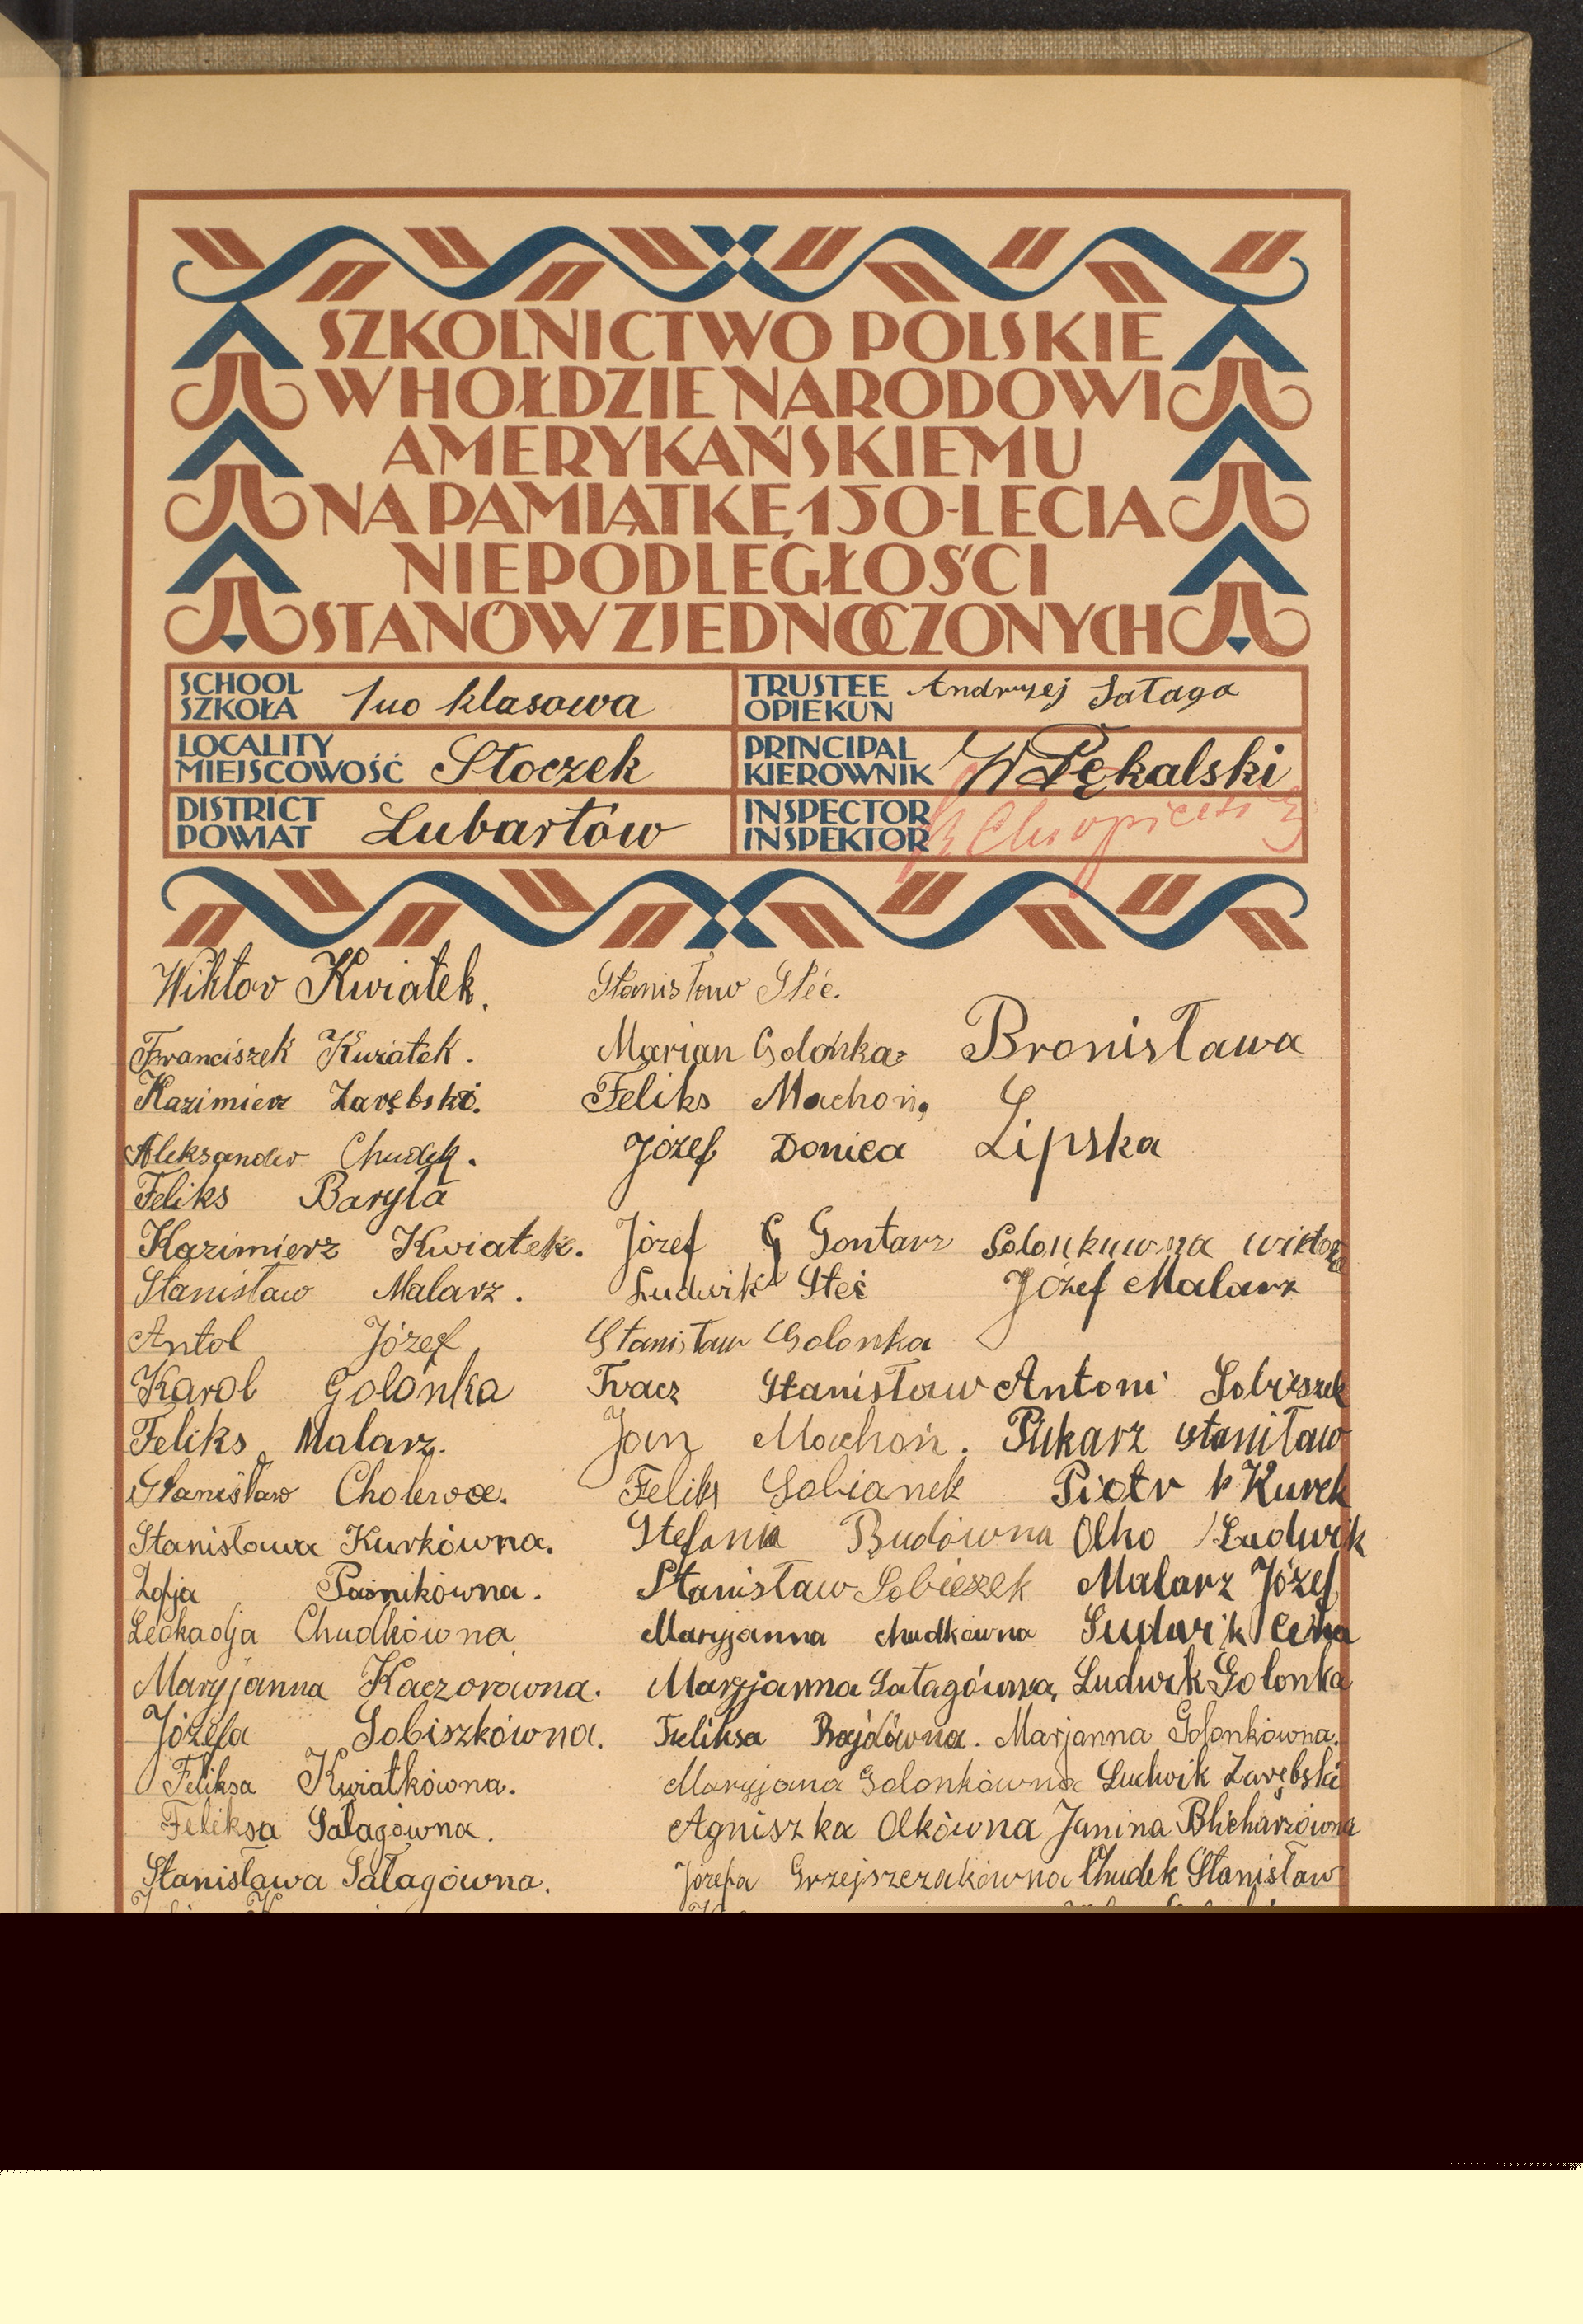 SZKOLNICTWO POLSKIE
W HOŁDZIE NARODOWI
AMERYKAŃSKIEMU
NA PAMIĄTKĘ 150-LECIA
NIEPODLEGŁOŚCI
STANÓW ZJEDNOCZONYCH
SCHOOL SZKOŁA 1no klasowa
TRUSTEE OPIEKUN Andrzej Sałaga
LOCALITY MIEJSCOWOŚĆ Stoczek
PRINCIPAL KIEROWNIK W Pękalski
DISTRICT POWIAT Lubartów
INSPECTOR INSPEKTOR
Wiktor Kwiatek.
Franciszek Kwiatek.
Kazimierz Zarębski.
Aleksander Chudek.
Feliks Baryła
Kazimierz Kwiatek.
Stanisław Malarz.
Antol Józef
Karol Golonka
Feliks Malarz.
Stanisław Cholewa.
Stanisława Kurkówna.
Zofja Paśnikówna.
Leokadja Chudkówna
Maryjanna Kaczorówna.
Józefa Sobiszkówna.
Feliksa Kwiatkówna.
Feliksa Sałagówna.
Stanisława Sałagówna.
Stanisław Steć.
Marian Golonka
Feliks Machoń
Józef Donica
Józef G Gontarz
Ludwik Steć
Stanisław Golonka
Tracz Stanisław
Jan Machoń.
Feliks Sobianek
Stefania Budówna
Stanisław Sobieszek
Maryjanna chudkówna
Maryjanna Sałagówna
Feliksa Bajdówna.
Maryjana Golonkówna
Agniszka Olkówna
Józefa Grzejszczakówna
Bronisława
Lipska
Józef Malarz
Antoni Sobieszek
Piekarz stanisław
Piotr k Kurek
Olko Ludwik
Malarz Józef
Ludwik
Ludwik Golonka
Marjanna Golonkówna.
Ludwik Zarębski
Janina Blicharzówna
Chudek Stanisław